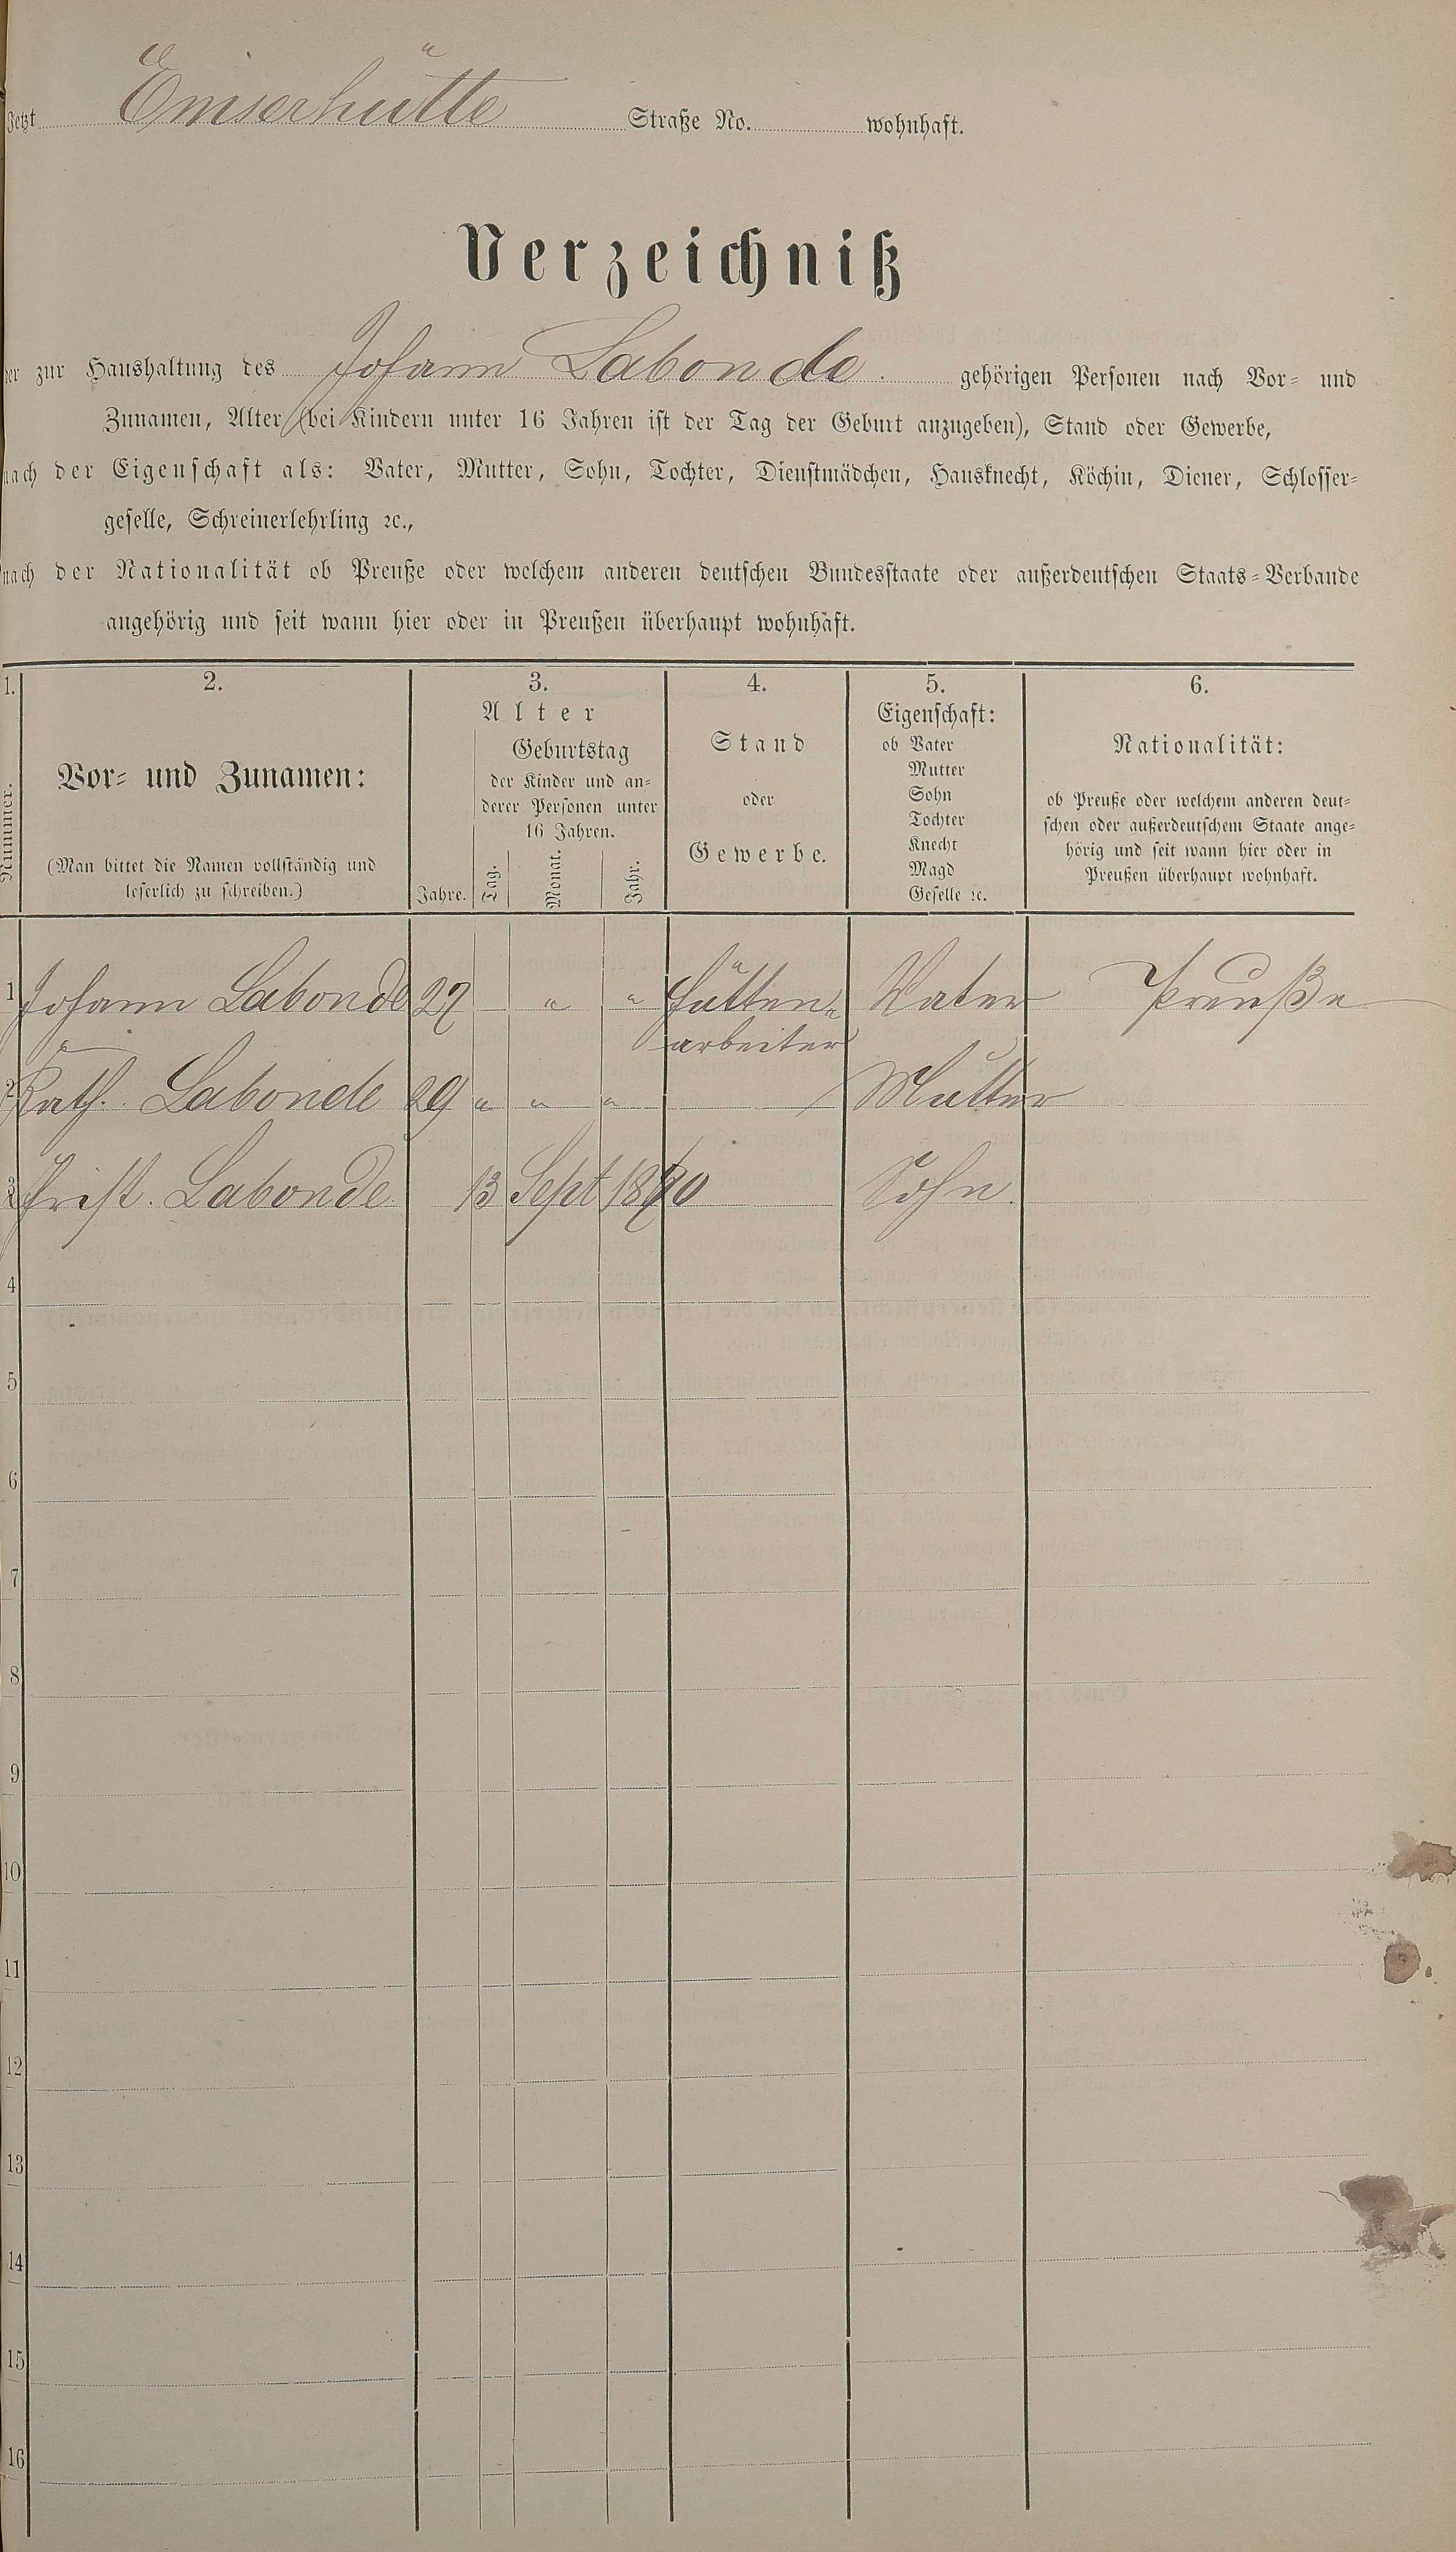 Jetzt Emserhütte Straße No. wohnhaft.
Verzeichniß
der zur Haushaltung des Johann Labonde. gehörigen Personen nach Vor- und
Zunamen, Alter (bei Kindern unter 16 Jahren ist der Tag der Geburt anzugeben), Stand oder Gewerbe,
nach der Eigenschaft als: Vater, Mutter, Sohn, Tochter, Dienstmädchen, Hausknecht, Köchin, Diener, Schlosser-
geselle, Schreinerlehrling ꝛc.,
nach der Nationalität ob Preuße oder welchem anderen deutschen Bundesstaate oder außerdeutschen Staats-Verbande
angehörig und seit wann hier oder in Preußen überhaupt wohnhaft.
1.
Nummer.
2.
Vor- und Zunamen:
(Man bittet die Namen vollständig und
leserlich zu schreiben.)
3.
Alter
Jahre.
Geburtstag
der Kinder und an-
derer Personen unter
16 Jahren.
Tag. Monat. Jahr.
4.
Stand
oder
Gewerbe.
5.
Eigenschaft:
ob Vater
Mutter
Sohn
Tochter
Knecht
Magd
Geselle ꝛc.
6.
Nationalität:
ob Preuße oder welchem anderen deut-
schen oder außerdeutschem Staate ange-
hörig und seit wann hier oder in
Preußen überhaupt wohnhaft.
1 Johann Labonde 27 " " Hütten- Vater Preuße
arbeiter
2 Kath. Labonde 29 " " " Mutter
3 Labonde 13 Sept 1890 Sohn.
4
5
6
7
8
9
10
11
12
13
14
15
16